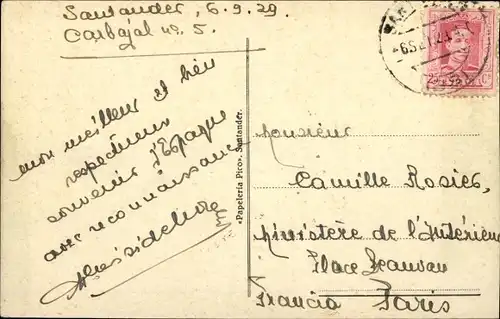 Santander, 6.9.29
Carbajal nº 5.
mon meilleur et bien
respectueux
souvenir d'Espagne
avec reconnaissance
«Papelería Pico». Santander.
Monsieur
Camille Rosier,
Ministère de l'Intérieur
Place Beauvau
Francia Paris